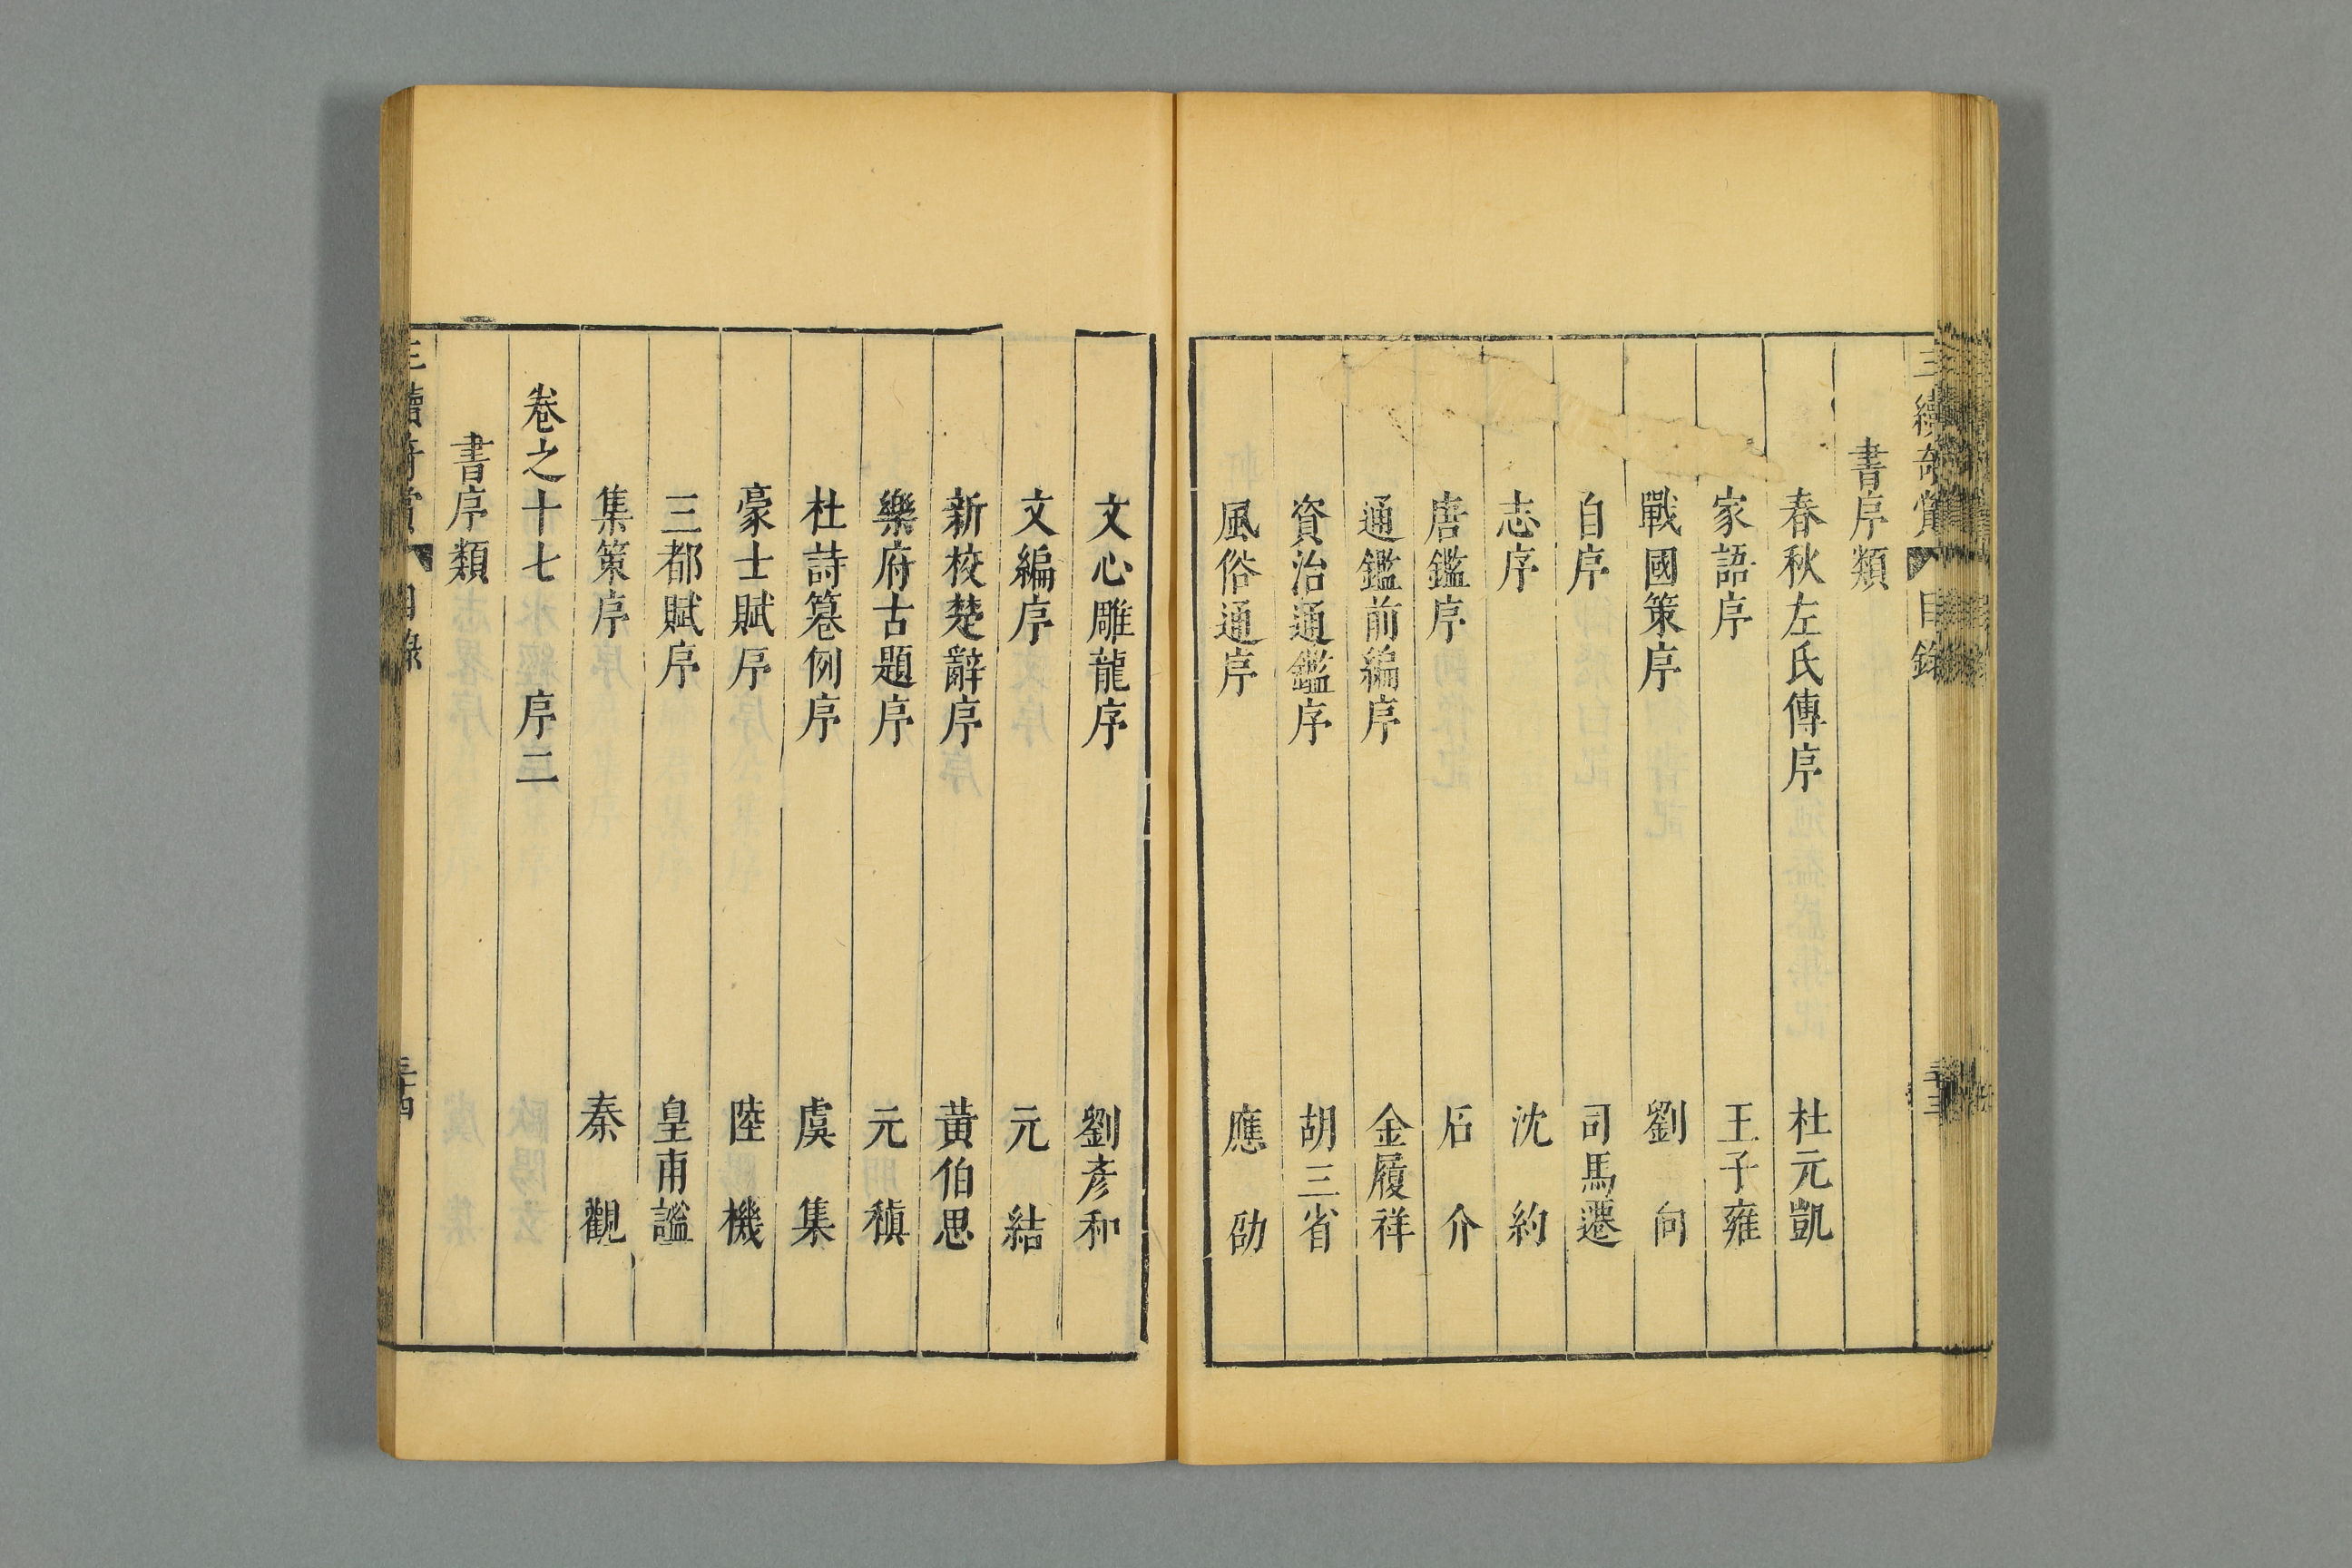 三續奇賞 目錄
書序類
春秋左氏傳序 杜元凱
家語序 王子雍
戰國策序 劉向
自序 司馬遷
志序 沈約
唐鑑序 石介
通鑑前編序 金履祥
資治通鑑序 胡三省
風俗通序 應劭
文心雕龍序 劉彥和
文編序 元結
新校楚辭序 黃伯思
樂府古題序 元稹
杜詩纂例序 虞集
豪士賦序 陸機
三都賦序 皇甫謐
集策序 秦觀
卷之十七 序二
書序類
三續奇賞 目錄